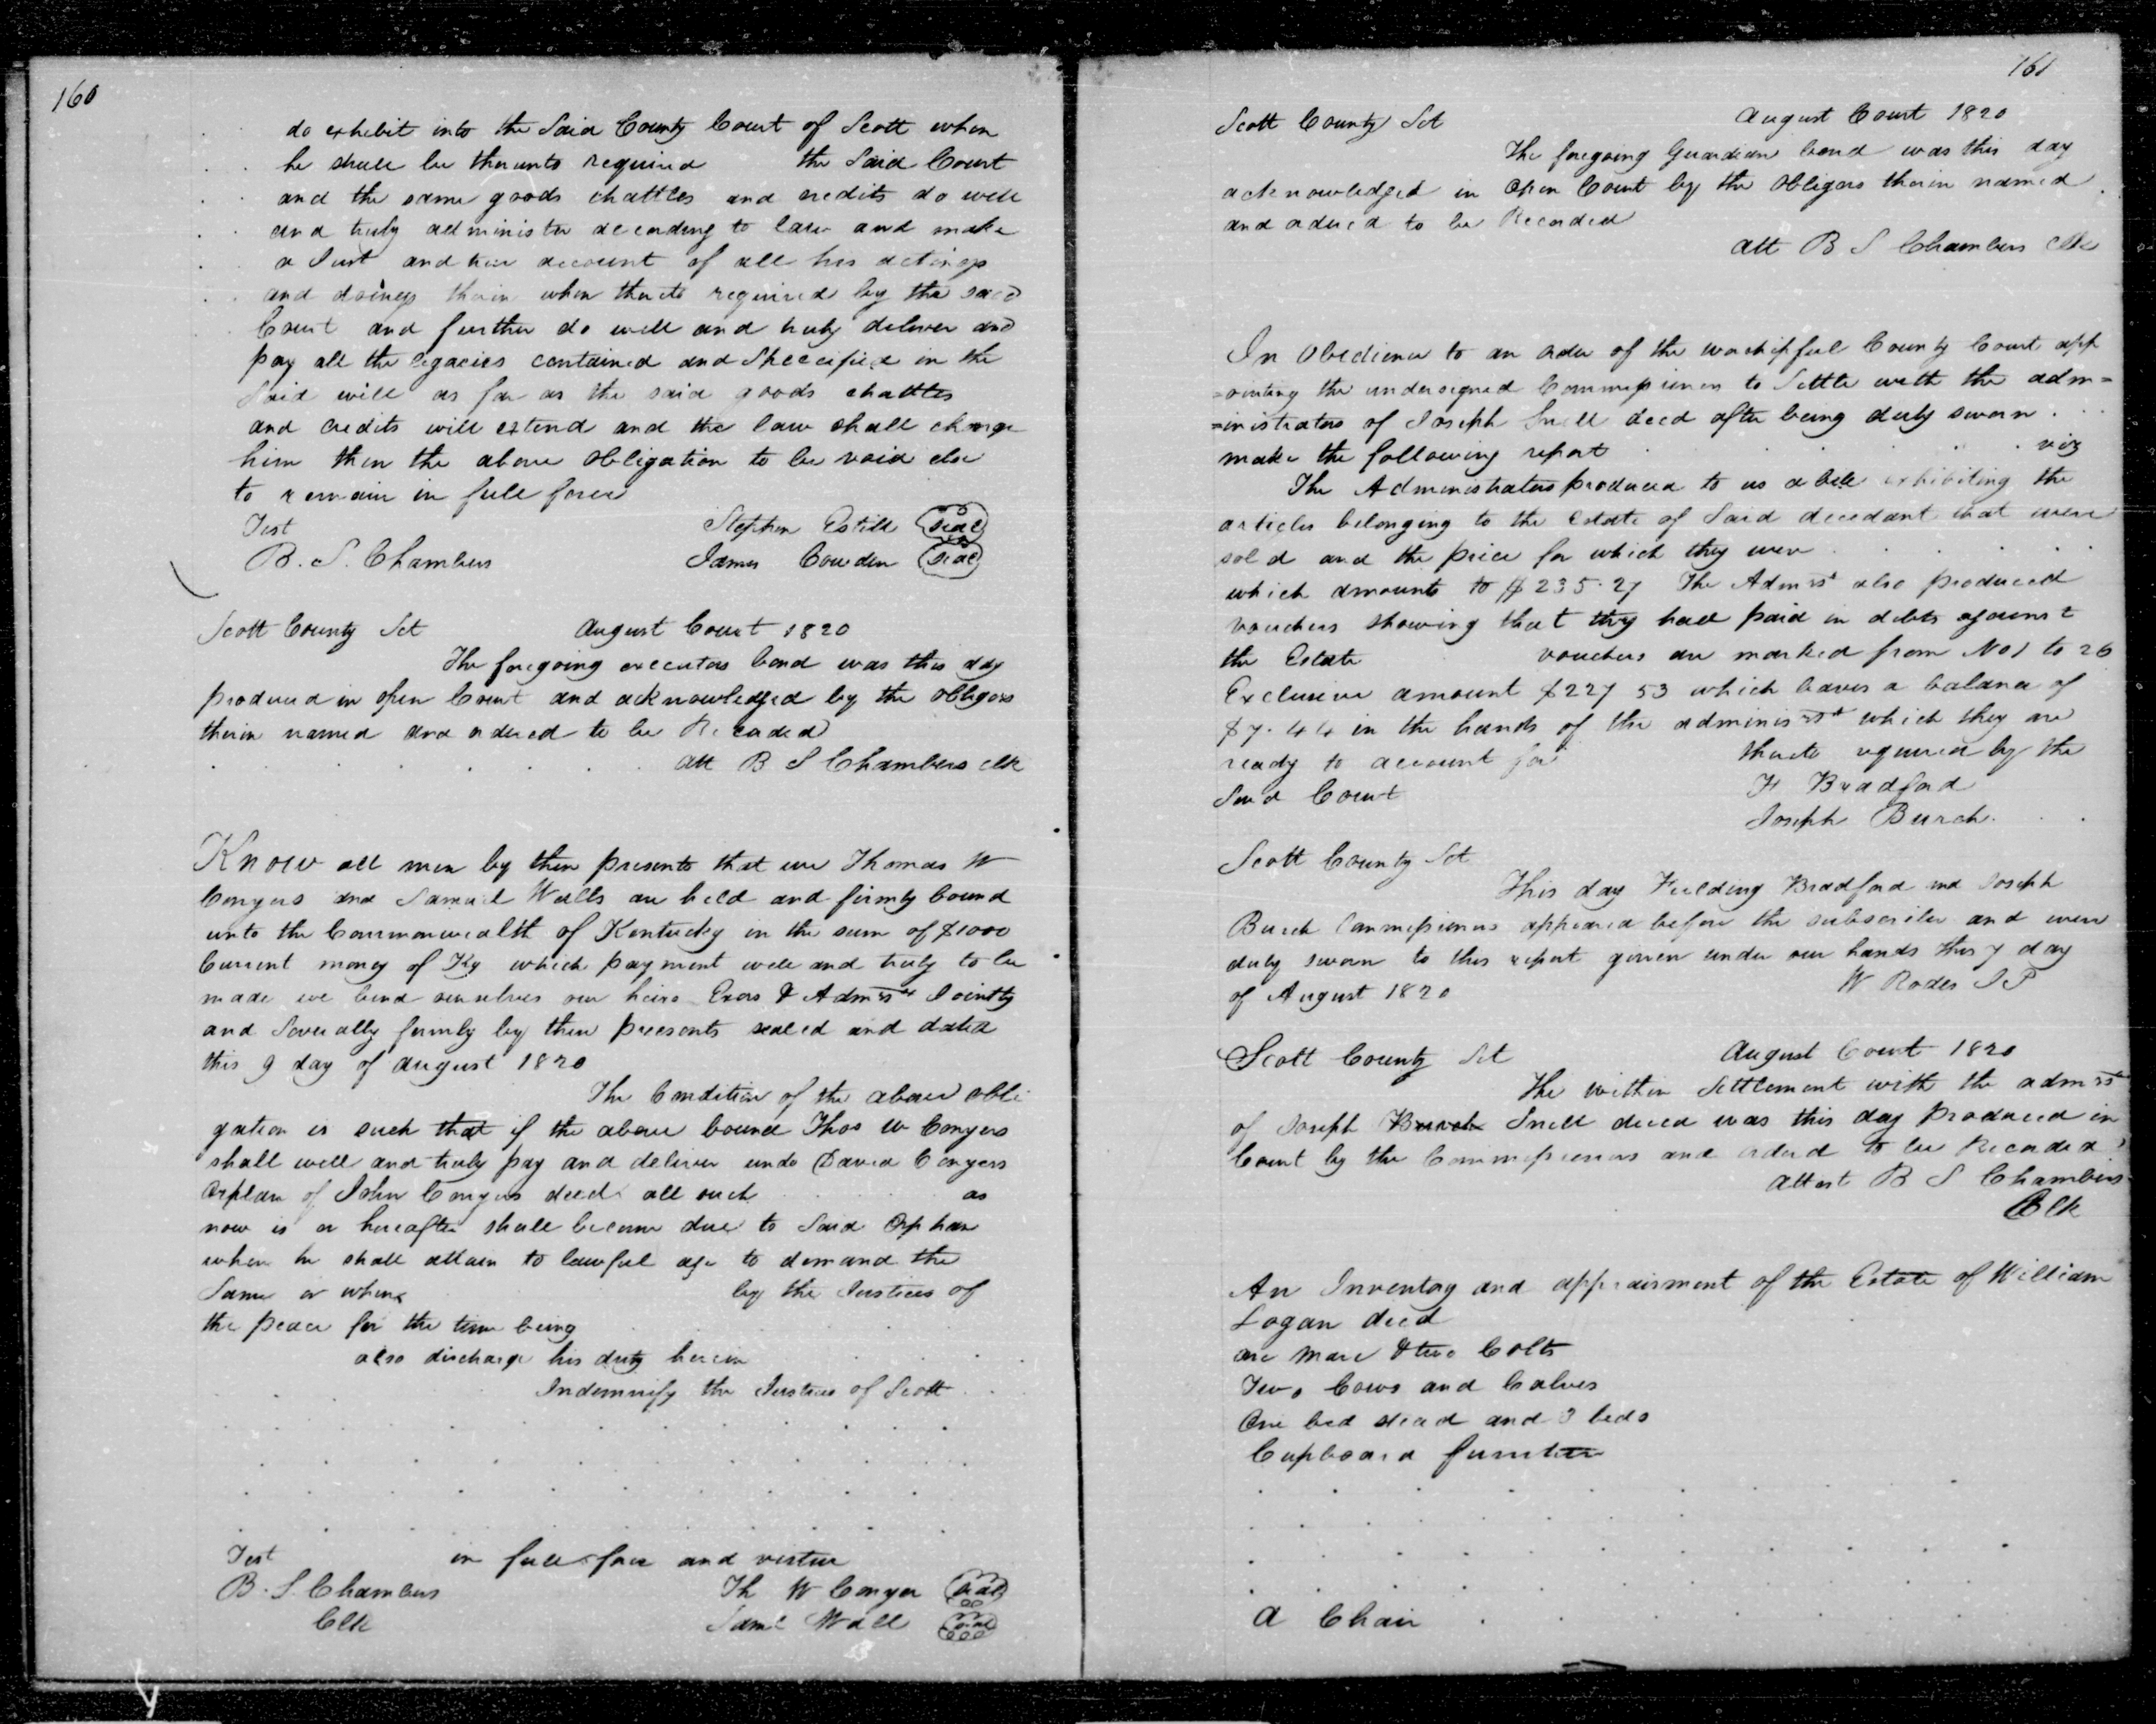 160
do exhibit into the Said County Court of Scott when
he shall be thereunto required the Said Court
and the same goods chattles and credits do well
and truly administer according to law and make
a Just and true account of all his actings
and doings therein when thereto required by the said
Court and further do well and truly deliver and
pay all the legacies contained and Speccified in the
Said will as far as the said goods chattles
and credits will extend and the law shall charge
him then the above obligation to be void else
to remain in full force
Test Stephen Estill Seal
B. S. Chambers James Cowden Seal
Scott County Sct August Court 1820
The foregoing executors bond was this day
produced in open Court and acknowledged by the obligors
therein named and ordered to be Recorded
att B S Chambers clk
Know all men by these presents that we Thomas W
Conyers and Samuel Walls are held and firmly bound
unto the Commonwealth of Kentucky in the sum of $1000
Current money of Ky which payment well and truly to be
made we bind ourselves our heirs Exors & Admrs Jointly
and Severally firmly by these presents sealed and dated
this 9 day of august 1820
The Condition of the above obli
gation is such that if the above bound Thos W Conyers
shall well and truly pay and deliver undo David Conyers
Orphan of John Conyers decd all such as
now is or hereafter shall become due to Said Orphan
when he shall attain to lawful age to demand the
Same or when by the Justices of
the peace for the time being
also discharge his duty herein
Indemnify the Justices of Scott
in full force and virtue
Test
B. S. Chambers Th W Conyer Seal
Clk Saml Wall Seal
161
Scott County Sct August Court 1820
The foregoing Guardian bond was this day
acknowledged in Open Court by the obligors therein named
and ordered to be Recorded
att B S Chambers clk
In Obedience to an order of the worshipful County Court app
=ointing the undersigned Commissioners to Settle with the adm=
=inistrators of Joseph Snell decd after being duly sworn
make the following report viz
The Administrators produced to us a bill exhibiting the
articles belonging to the Estate of Said decedant that were
sold and the price for which they were
which amounts to $235.27 The Admrs also produced
vouchers showing that they had paid in debts against
the Estate vouchers are marked from No 1 to 26
Exclusive amount $227 53 which leaves a balance of
$7.44 in the hands of the administ which they are
ready to account for thereto required by the
Said Court F Bradford
Joseph Burch
Scott County Sct
This day Fielding Bradford and Joseph
Burch Commissioners appeared before the subscriber and were
duly sworn to this report given under our hands this 7 day
of August 1820 W Rodes J P
Scott County Sct August Court 1820
The within Settlement with the admrs
of Joseph Burch Snell decd was this day produced in
Court by the Commissioners and orderd to be Recorded
Attest B S Chambers
Clk
An Inventory and appraisment of the Estate of William
Logan decd
one Mare & two Colts
Two Cows and Calves
One bed stead and 3 beds
Cupboard furniture
a Chair